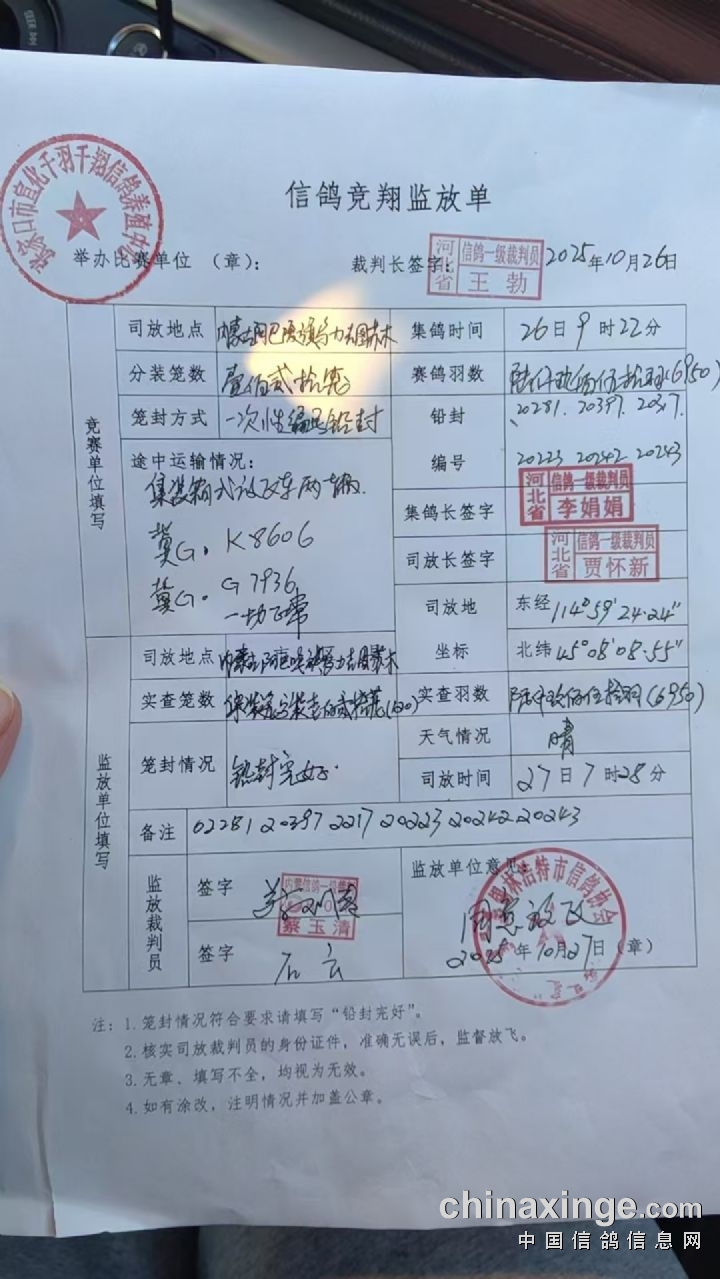 张家口市宣化千羽千翔信鸽养殖中心
信鸽竞翔监放单
举办比赛单位 （章）： 裁判长签字： 2025年10月26日
河北省 信鸽一级裁判员 王勃
竞赛单位填写
司放地点
集鸽时间 26日9时22分
分装笼数 壹佰贰拾笼
赛鸽羽数 陆仟玖佰伍拾羽(6950)
笼封方式 一次性编号铅封
铅封 20281. 20397. 2017.
编号 20223 20242 20243
途中运输情况：
集装箱式放飞车两辆.
冀G. K8606
冀G. G7936
一切正常
集鸽长签字 河北省 信鸽一级裁判员 李娟娟
司放长签字 河北省 信鸽一级裁判员 贾怀新
司放地 东经 114°59′24.24″
坐标 北纬 45°08′08.55″
监放单位填写
司放地点
实查笼数
实查羽数 陆仟玖佰伍拾羽(6950)
笼封情况 铅封完好.
天气情况 晴
司放时间 27日7时28分
备注 02281 20397 2217 20223 20242 20243
监放裁判员
签字 蔡玉清
签字 石云
监放单位意见：
同意放飞
林浩特市信鸽协会
2025年10月27日（章）
注：1. 笼封情况符合要求请填写“铅封完好”。
2. 核实司放裁判员的身份证件，准确无误后，监督放飞。
3. 无章、填写不全，均视为无效。
4. 如有涂改，注明情况并加盖公章。
chinaxinge.com
中国信鸽信息网